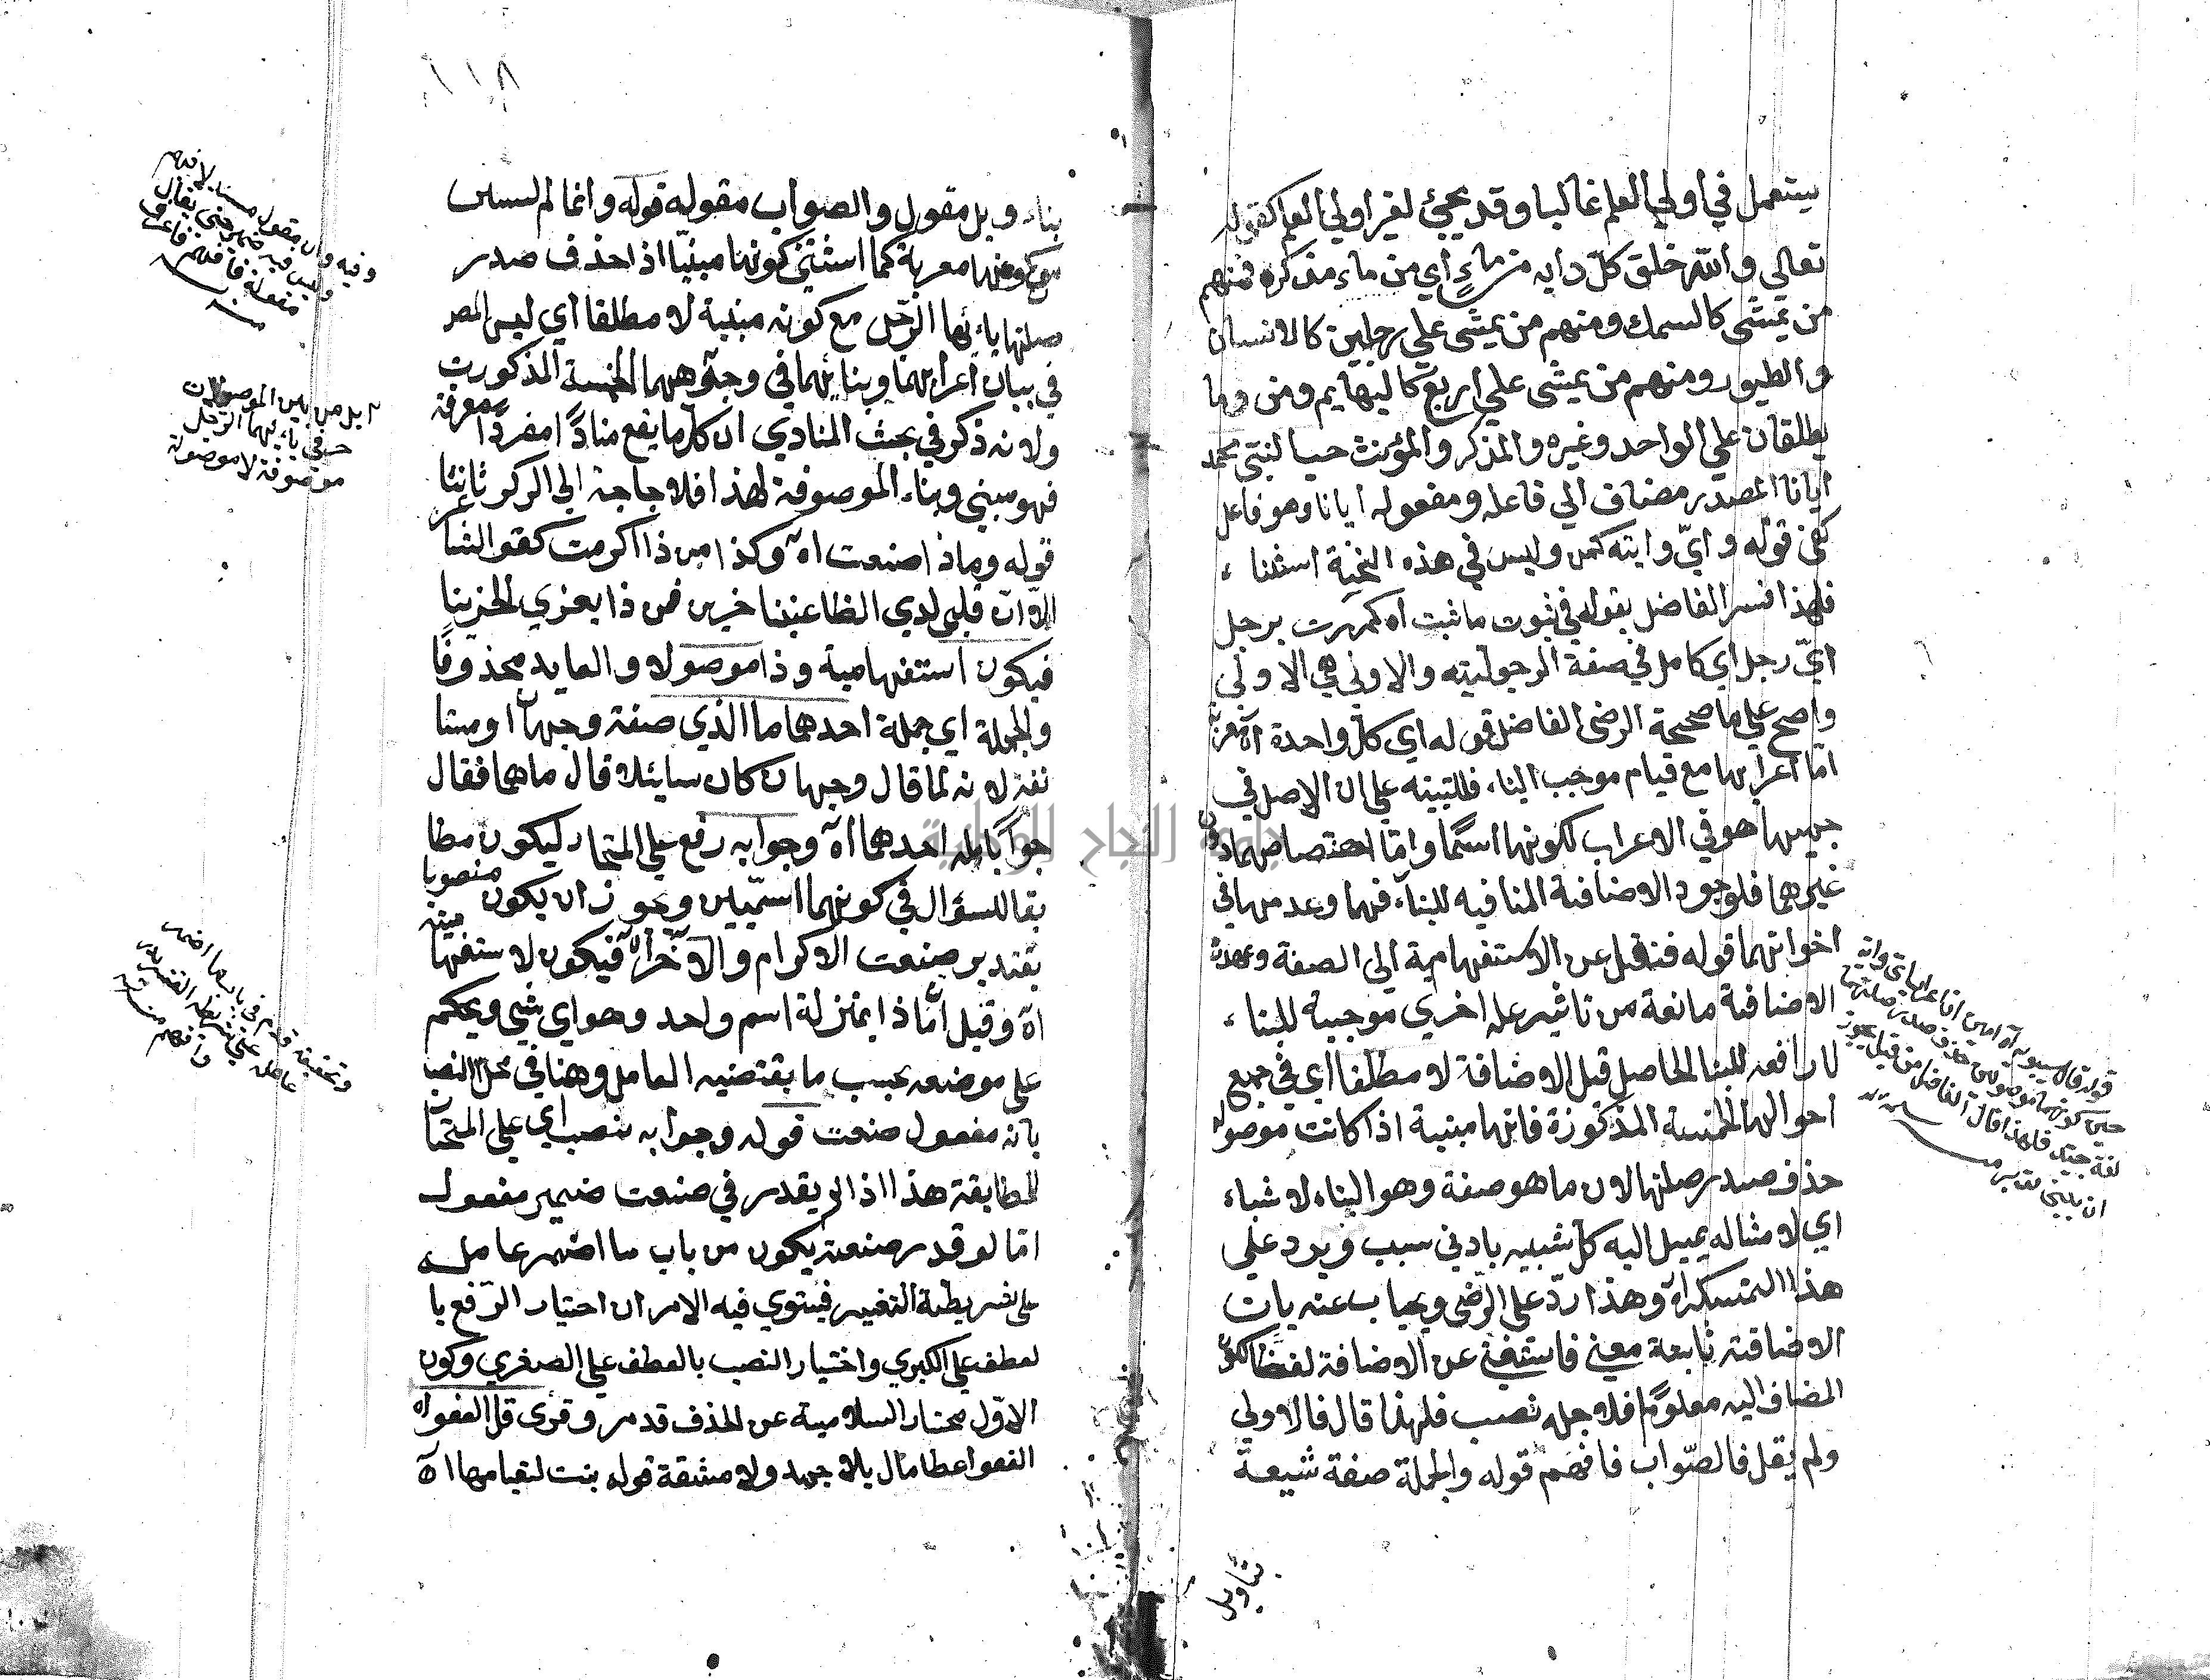 يستعمل في أولي العلم غالبا وقد يجيئ لغير اولي العلم كقوله
تعالي والله خلق كل دابه من ماءٍ اي من ماء مذكره فمنهم
من يمشي كالسمك ومنهم من يمشي علي رجلين كالانسان
والطيور ومنهم من يمشي علي اربع كالبهايم ومن وما
يطلقان علي الواحد وغيره والمذكر والمؤنث حب النبي محمد
ايانا المصدر مضاف الي فاعله ومفعوله ايانا وهو فاعل
كفي قوله واي واية كمن وليس في هذه استثناء
فلهذا فسر الفاضل بقوله في ثبوت ما ثبت اه كمررت برجل
ايّ رجل اي كامل في صفة الرجوليته والاولي هي الاولي
واصح علي ما صححة الرضي الفاضل قوله اي كل واحدة اه معربة
امّا اعرابها مع قيام موجب البناء فللتبينه علي ان الاصل في
هو في الاعراب لكونها اسمًا وامّا اختصاصهما دون
غيرهما فلوجود الاضافة المنافيه للبناء فيهما وعدمها في
اخواتهما قوله فنقل عن الاستفهامية الي الصفة وهذه
الاضافة مانعة من تاثير عله اخري موجبية للبناء
لا رافعه للبنا الحاصل قبل الاضافة لا مطلقا اي في جميع
احوالها الخمسة المذكورة فانها مبنية اذا كانت موصوله
حذف صدر صلتها لان ما هو صفة وهو البناء لاشباء
اي لامثاله يميل اليه كل شبيه بادني سبب ويرد علي
هذا التمسكراه وهذا ردّ علي الرضي ويجاب عنه بان
الاضافة ثابعة معني فاستغني عن الاضافة لفظا لكون
المضاف اليه معلومًا فلاجله نصب فلهذا قال فالاولي
ولم يقل فالصّواب فافهم قوله والجملة صفة شيعة
بتأويل
قوله قال سيبويه اه
حين كونهما موصولين حذف صدر صلتها
لغة جيدة فلهذا قال الفاضل من قبل يجوز
١١٨
بناء وبل مقول والصواب مقوله قوله وانما لم
كونها معربة كما استثني كونها مبنيّا اذا حذف صدر
صلتها يا ايها الرّجل مع كونه مبنية لا مطلقا اي ليس المصر
في بيان اعرابهما وبنائهما في وجوههما الخمسة المذكورت
ولانه ذكر في بحث المنادي ان كل ما يقع منادًا مفردًا معرفة
فهو مبني وبناء الموصوفة لهذا فلا حاجة الي الركر ثانيًا
قوله وماذا صنعت اه وكذا من ذا اكرمت كقو الشاعر
الا ان قلبي لدي الظاعنينا حزين فمن ذا يعزي الحزينا
فيكون استفهامية وذا موصوله والعايد محذوفًا
والجملة اي جملة احدهما ما الذي صفة وجهان او مستا
نفة لانه لما قال وجهان كان سايئلا قال ما هما فقال
جوابًا له احدهما اه وجوابه رفع علي المختار ليكون مطا
بقا للسؤال في كونهما اسميين ويجوز ان يكون منصوبا
بقتدير صنعت الاكرام والآخر اه فيكون لاستفهامية
اه وقيل امّا ذا بمنزلة اسم واحد وهو اي شيي ويحكم
علي موضعه بحسب ما يقتضيه العامل وهنا في محل النصب
بانه مفعول صنعت قوله وجوابه نصب اي علي المختار
للمطابقة هذا اذا لم يقدر في صنعت ضمير مفعول
امّا لو قدر صنعته يكون من باب ما اضمر عامله
علي شريطة التفسير فيستوي فيه الامران اختيار الرّفع با
لعطف علي الكبري واختيار النصب بالعطف علي الصغري وكون
الاوّل مختار السلامية عن الحذف قد مر وقرئ قل العفو اه
العفو اعطا مال بلا جهد ولا مشقة قوله بنت لقيامها اه
وفيه وان مقول مسند
وليس فيه ضمير حتي يقال
مفعولة فافهم
حرفي يا ايها الرجل
موصوفة لا موصولة
وتحقيقه قد مر في باب ما اضمر
عامله علي شريطة التفسير
وافهم منه
جامعة النجاح الوطنية